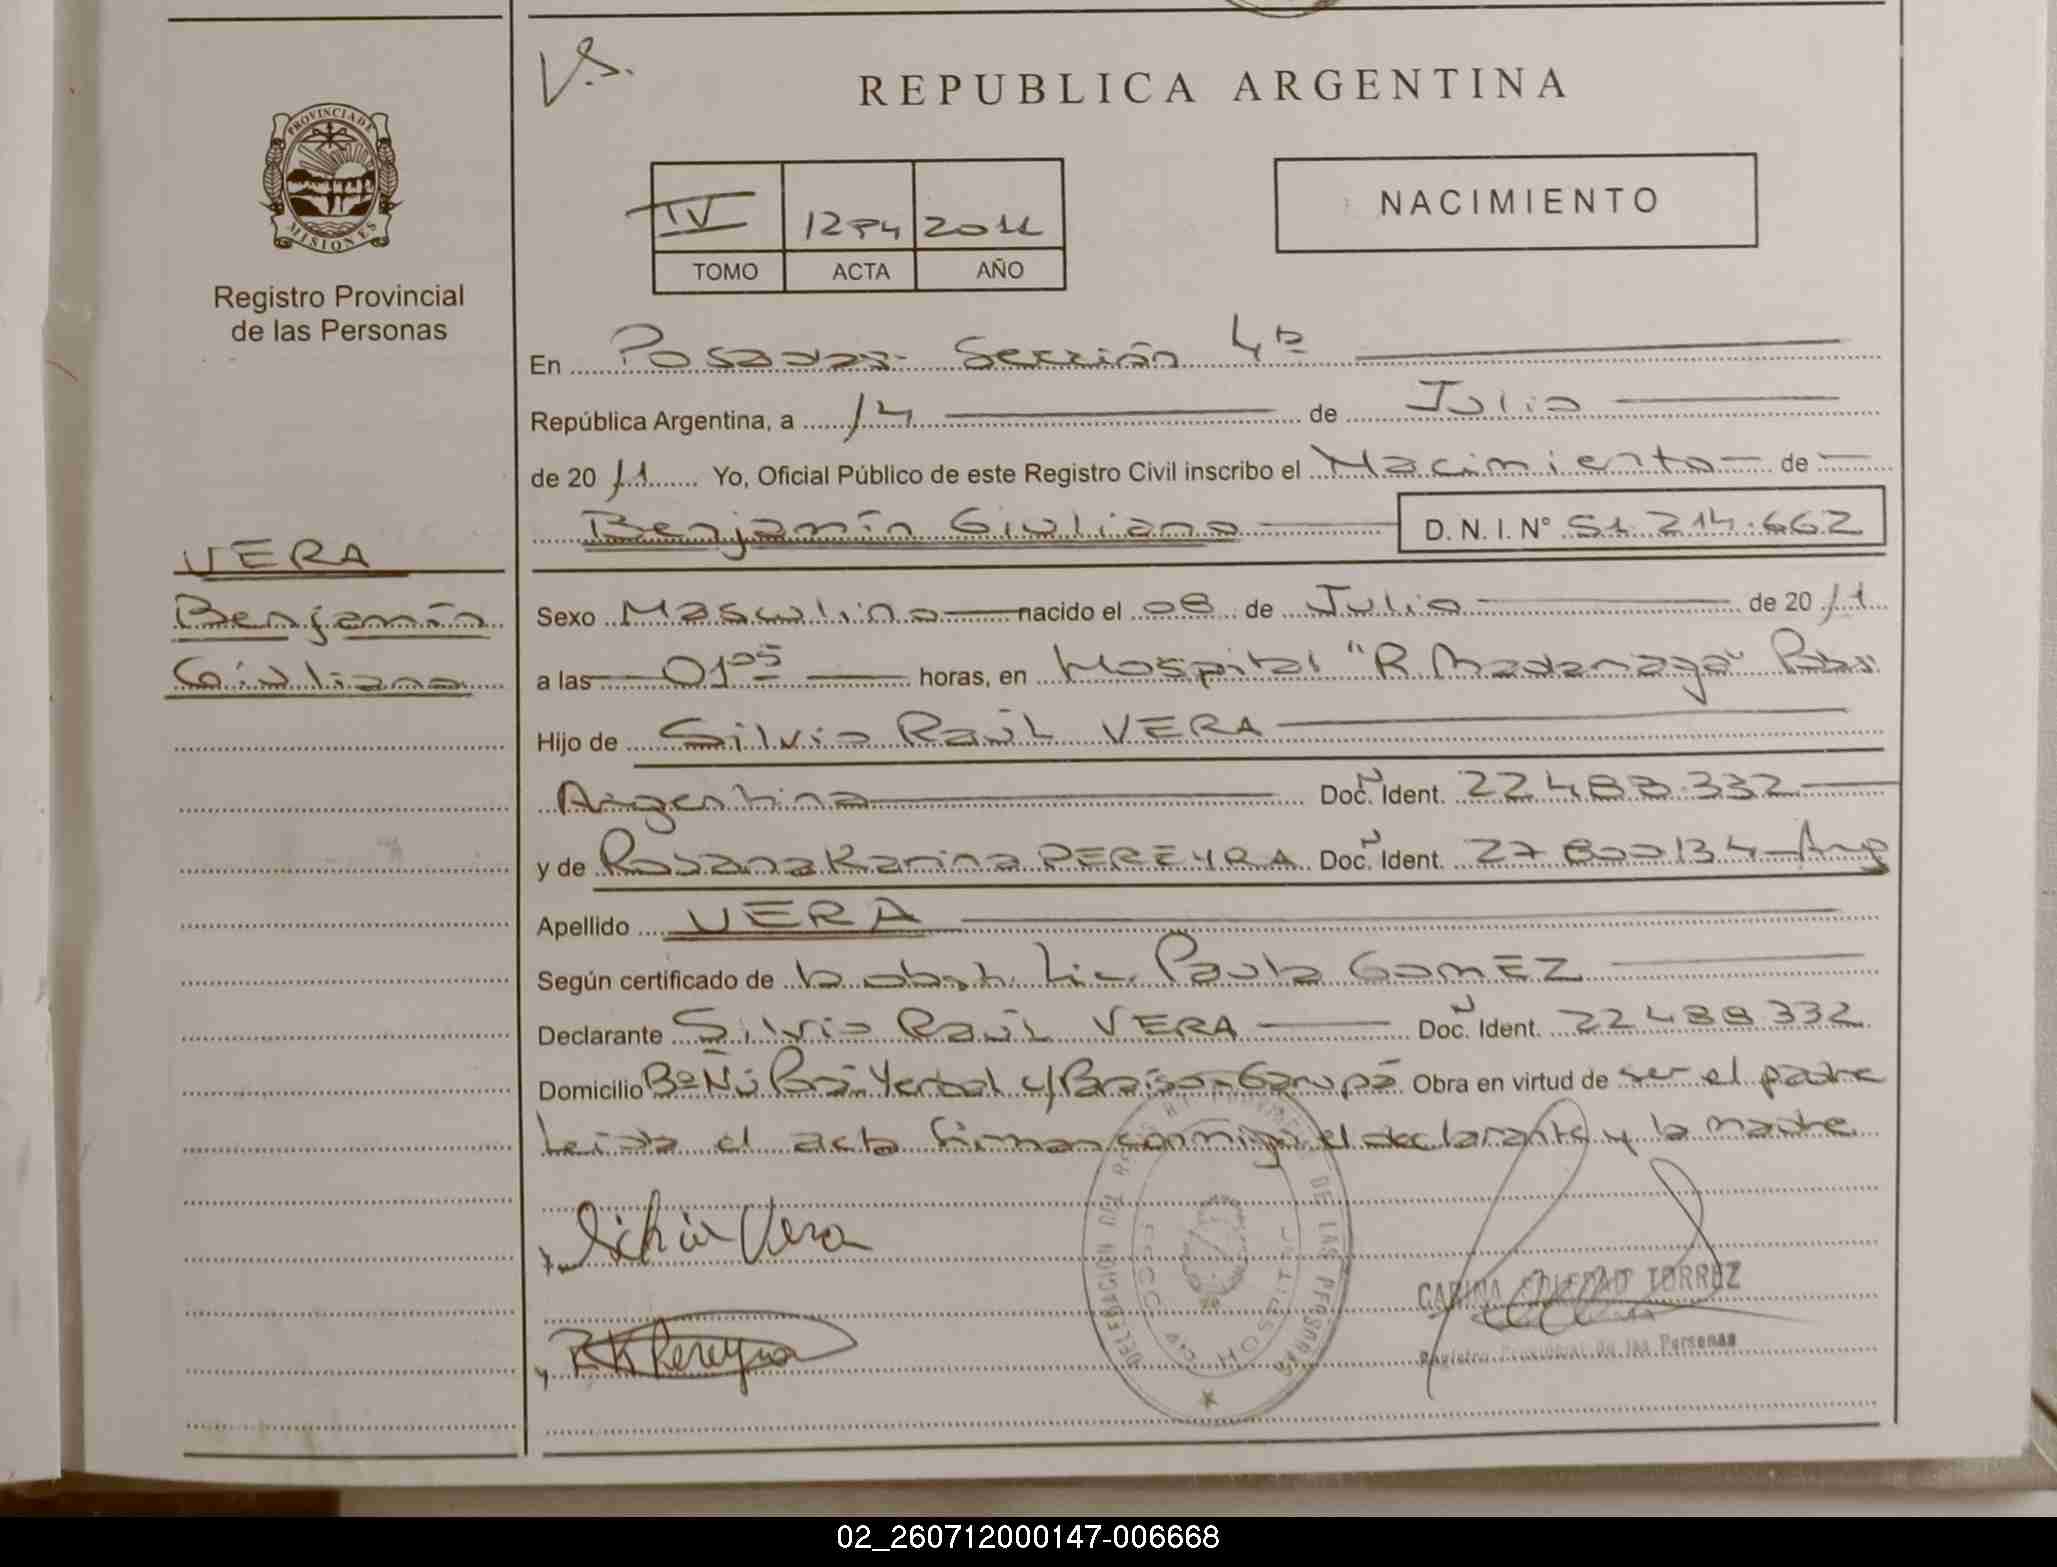 V.S.
REPUBLICA ARGENTINA
PROVINCIA DE
MISIONES
Registro Provincial
de las Personas
IV 2011
TOMO ACTA AÑO
NACIMIENTO
En Posadas- Sección 4ª
República Argentina, a 14 de Julio
de 2011 Yo, Oficial Público de este Registro Civil inscribo el Nacimiento de
Benjamín Giuliano D. N. I. N° 51.214.662
VERA
Benjamín
Giuliano
Sexo Masculino nacido el 08 de Julio de 2011
a las 01⁰⁵ horas, en Hospital "R. Madariaga"
Hijo de Silvio Raúl VERA
Argentina Doc. Ident. 22 488.332
y de Rosana Karina PEREYRA Doc. Ident. 27 800134 Arg
Apellido VERA
Según certificado de la obst. Lic. Paula GOMEZ
Declarante Silvio Raúl VERA Doc. Ident. 22 488 332
Domicilio Bº Ñú Porá Yerbal y Garupá Obra en virtud de ser el padre
Leída el acta firman conmigo el declarante y la madre
Silvio Vera
R K Pereyra
DELEGACION DEL REGISTRO PROVINCIAL DE LAS PERSONAS
HOSPITAL
CARINA SOLEDAD TORREZ
Registro Provincial de las Personas
02_260712000147-006668